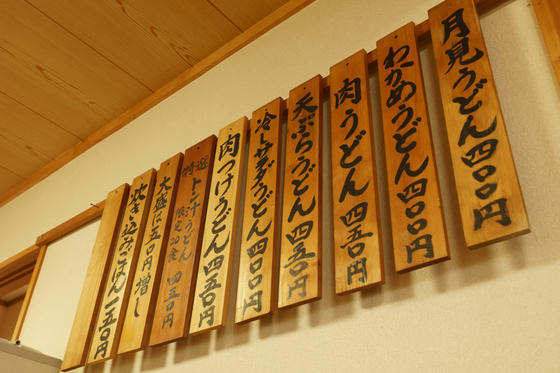 月見うどん四〇〇円
わかめうどん四〇〇円
肉うどん四五〇円
天ぷらうどん四五〇円
冷サラダうどん四〇〇円
肉つけうどん四五〇円
特選トン汁うどん
限定20食 四五〇円
大盛は五〇円増し
炊き込みごはん一五〇円